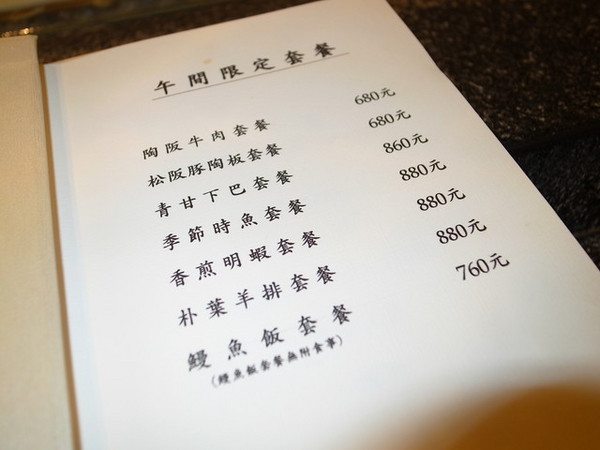 午間限定套餐
陶阪牛肉套餐 680元
松阪豚陶板套餐 680元
青甘下巴套餐 860元
季節時魚套餐 880元
香煎明蝦套餐 880元
朴葉羊排套餐 880元
鰻魚飯套餐 760元
(鰻魚飯套餐無附食事)